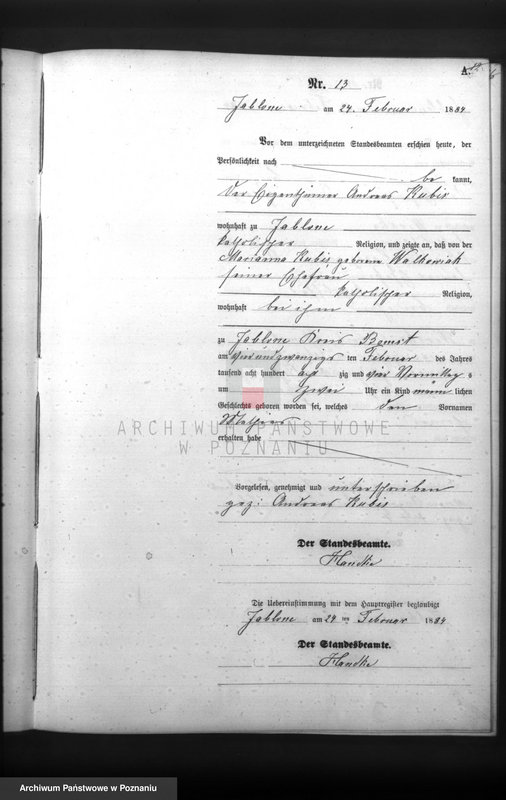 A.
Nr. 13
Jablone am 24. Februar 1884
Vor dem unterzeichneten Standesbeamten erschien heute, der
Persönlichkeit nach
be kannt,
der Eigenthümer Andreas Kubis
wohnhaft zu Jablone
katholischer Religion, und zeigte an, daß von der
Marianna Kubis geborene Walkowiak
seiner Ehefrau
katholischer Religion,
wohnhaft bei ihm
zu Jablone Kreis Bomst
am vierundzwanzigs ten Februar des Jahres
tausend acht hundert acht zig und vier Vormittag s
um zwei Uhr ein Kind männ lichen
Geschlechts geboren worden sei, welches den Vornamen
Mathias
erhalten habe
ARCHIWUM PAŃSTWOWE
W POZNANIU
Vorgelesen, genehmigt und unterschrieben
gez: Andreas Kubis
Der Standesbeamte.
Handke
Die Uebereinstimmung mit dem Hauptregister beglaubigt
Jablone am 24 ten Februar 1884
Der Standesbeamte.
Handke
Archiwum Państwowe w Poznaniu